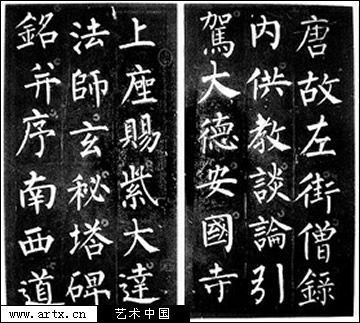 唐故左街僧錄
内供教談論引
駕大德安國寺
上座賜紫大達
法師玄秘塔碑
銘并序南西道
www.artx.cn
艺术中国